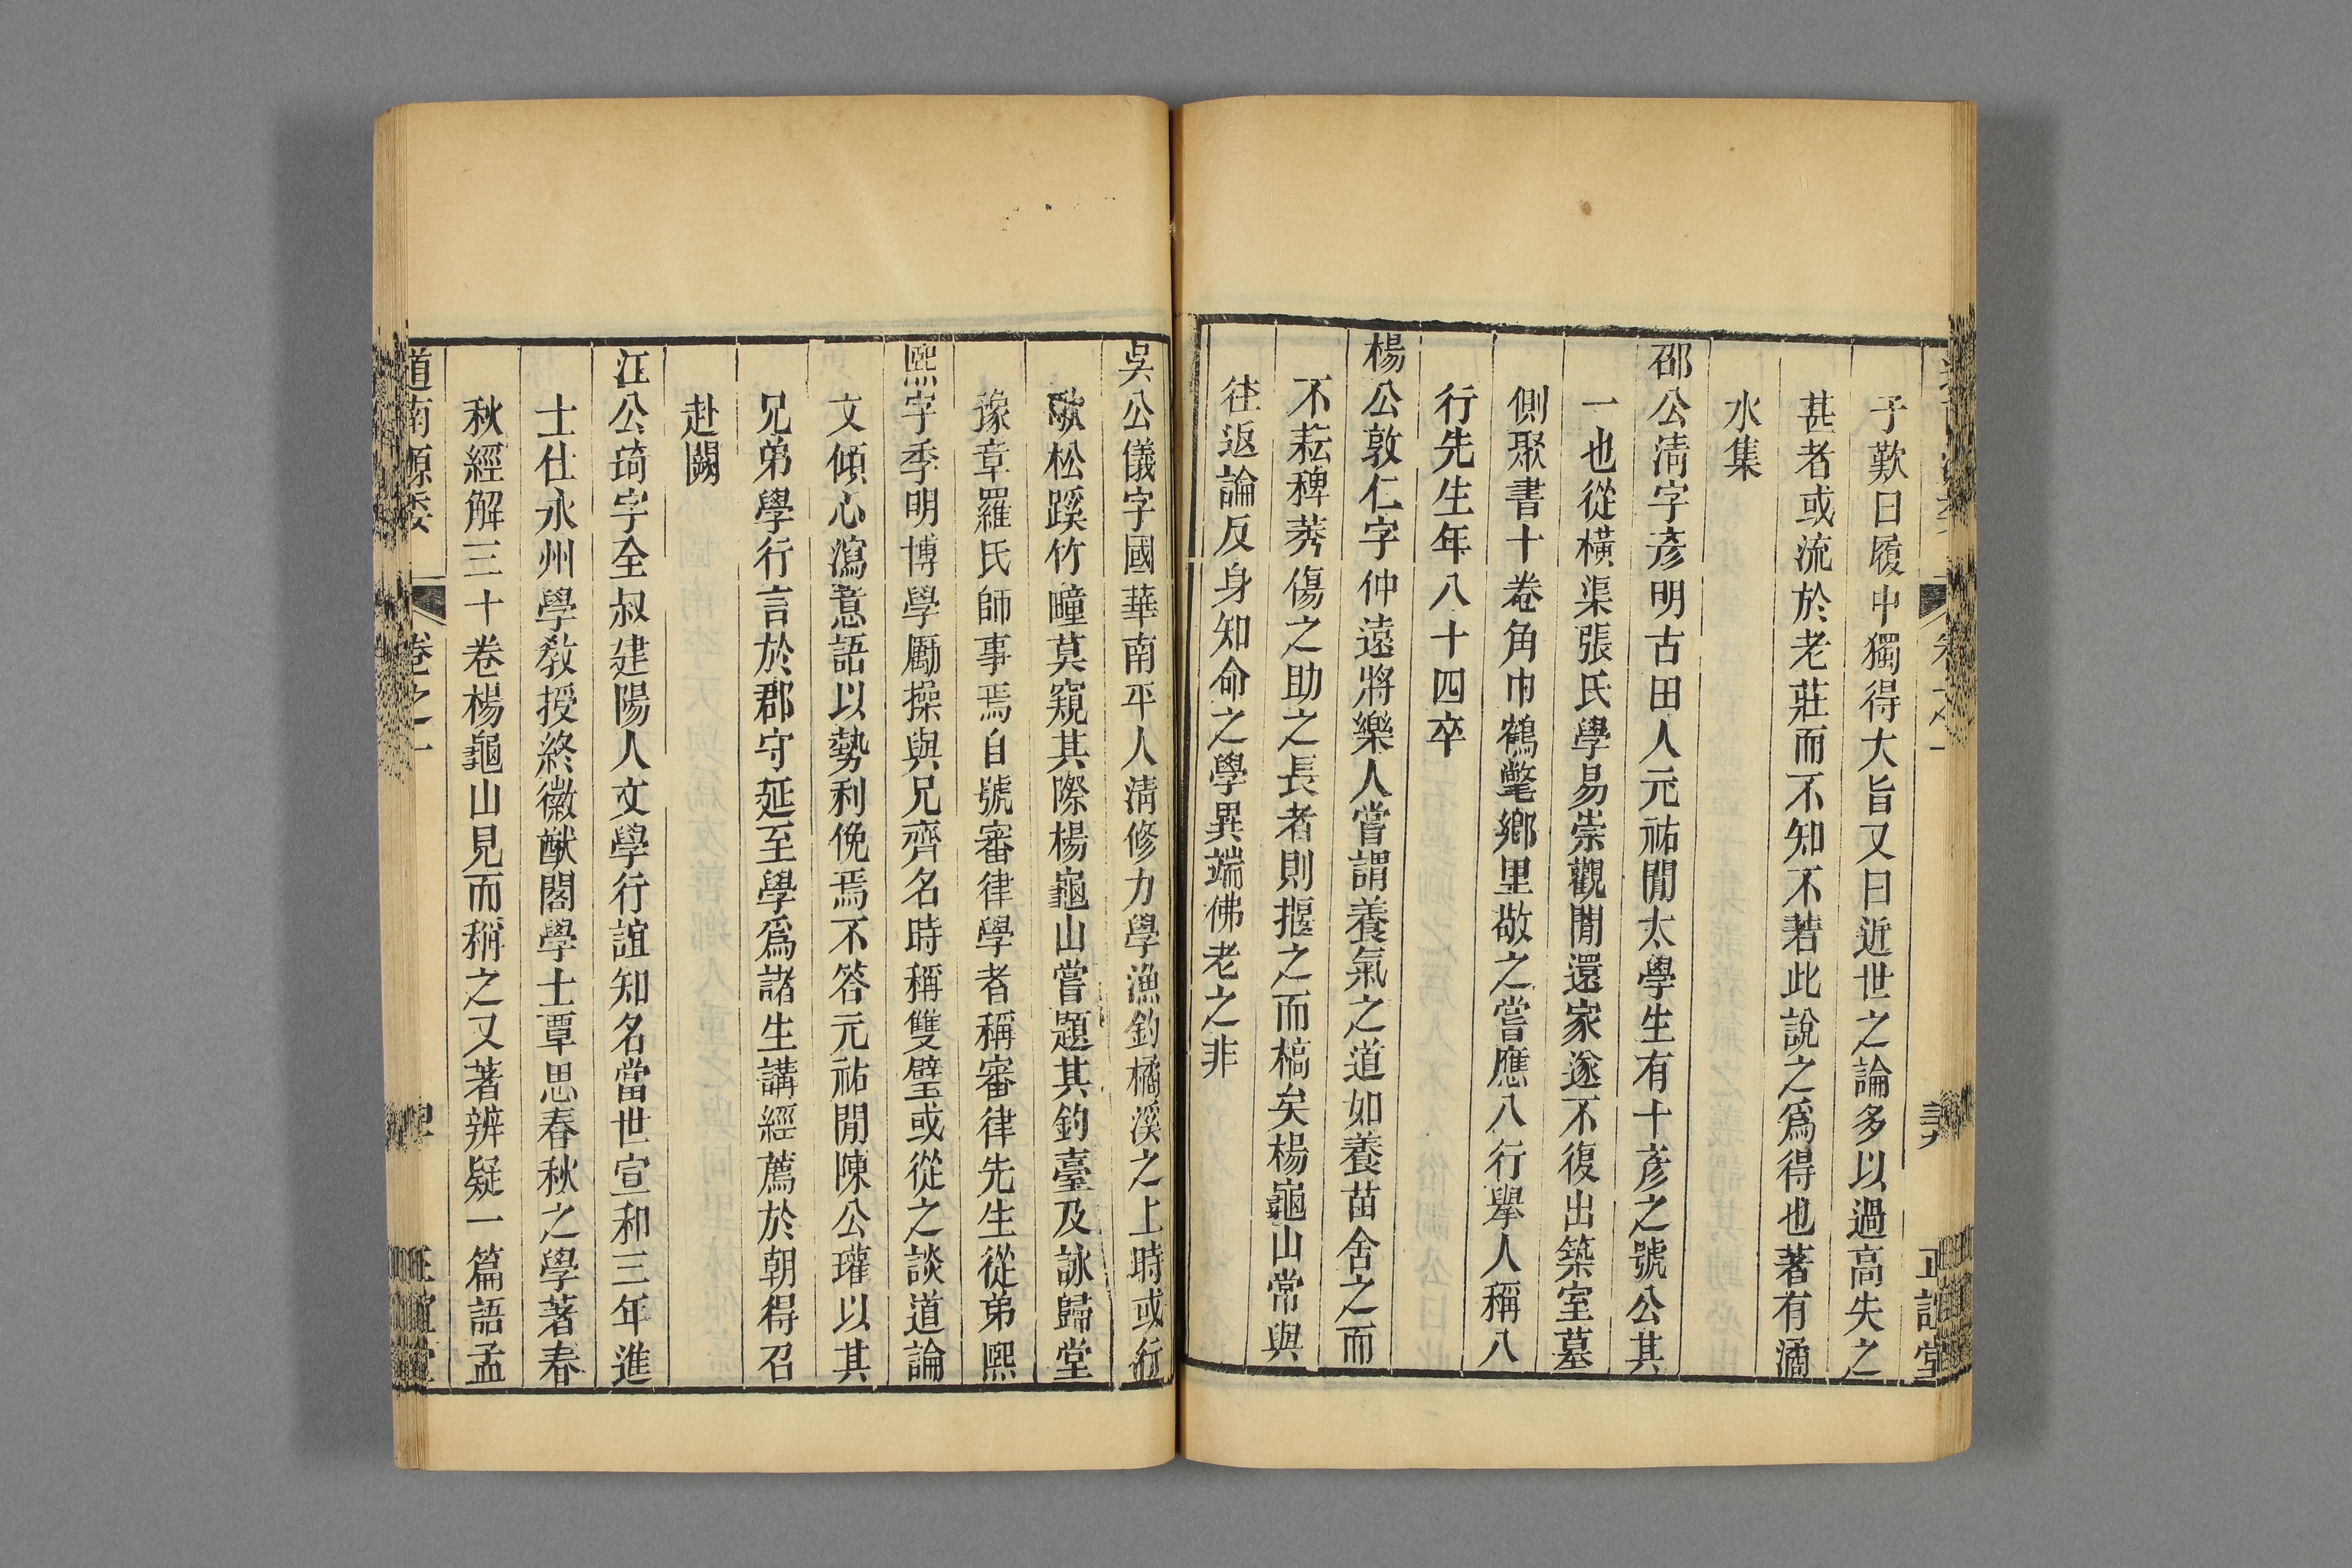 子歎曰履中獨得大旨又曰近世之論多以過高失之
甚者或流於老莊而不知不若此說之爲得也著有潏
水集
邵公淸字彥明古田人元祐閒太學生有十彥之號公其
一也從橫渠張氏學易崇觀閒還家遂不復出築室墓
側聚書十卷角巾鶴氅鄉里敬之嘗應八行舉人稱八
行先生年八十四卒
楊公敦仁字仲遠將樂人嘗謂養氣之道如養苗舍之而
不耘稗莠傷之助之長者則揠之而槁矣楊龜山常與
徃返論反身知命之學異端佛老之非
吳公儀字國華南平人淸修力學漁釣橘溪之上時或行
歌松蹊竹疃莫窺其際楊龜山嘗題其釣臺及詠歸堂
豫章羅氏師事焉自號審律學者稱審律先生從弟熙
熙字季明博學勵操與兄齊名時稱雙璧或從之談道論
文傾心瀉意語以勢利俛焉不答元祐閒陳公瓘以其
兄弟學行言於郡守延至學爲諸生講經薦於朝得召
赴闕
江公琦字全叔建陽人文學行誼知名當世宣和三年進
士仕永州學敎授終徽猷閣學士覃思春秋之學著春
秋經解三十卷楊龜山見而稱之又著辨疑一篇語孟
道南源委 卷之一 正誼堂